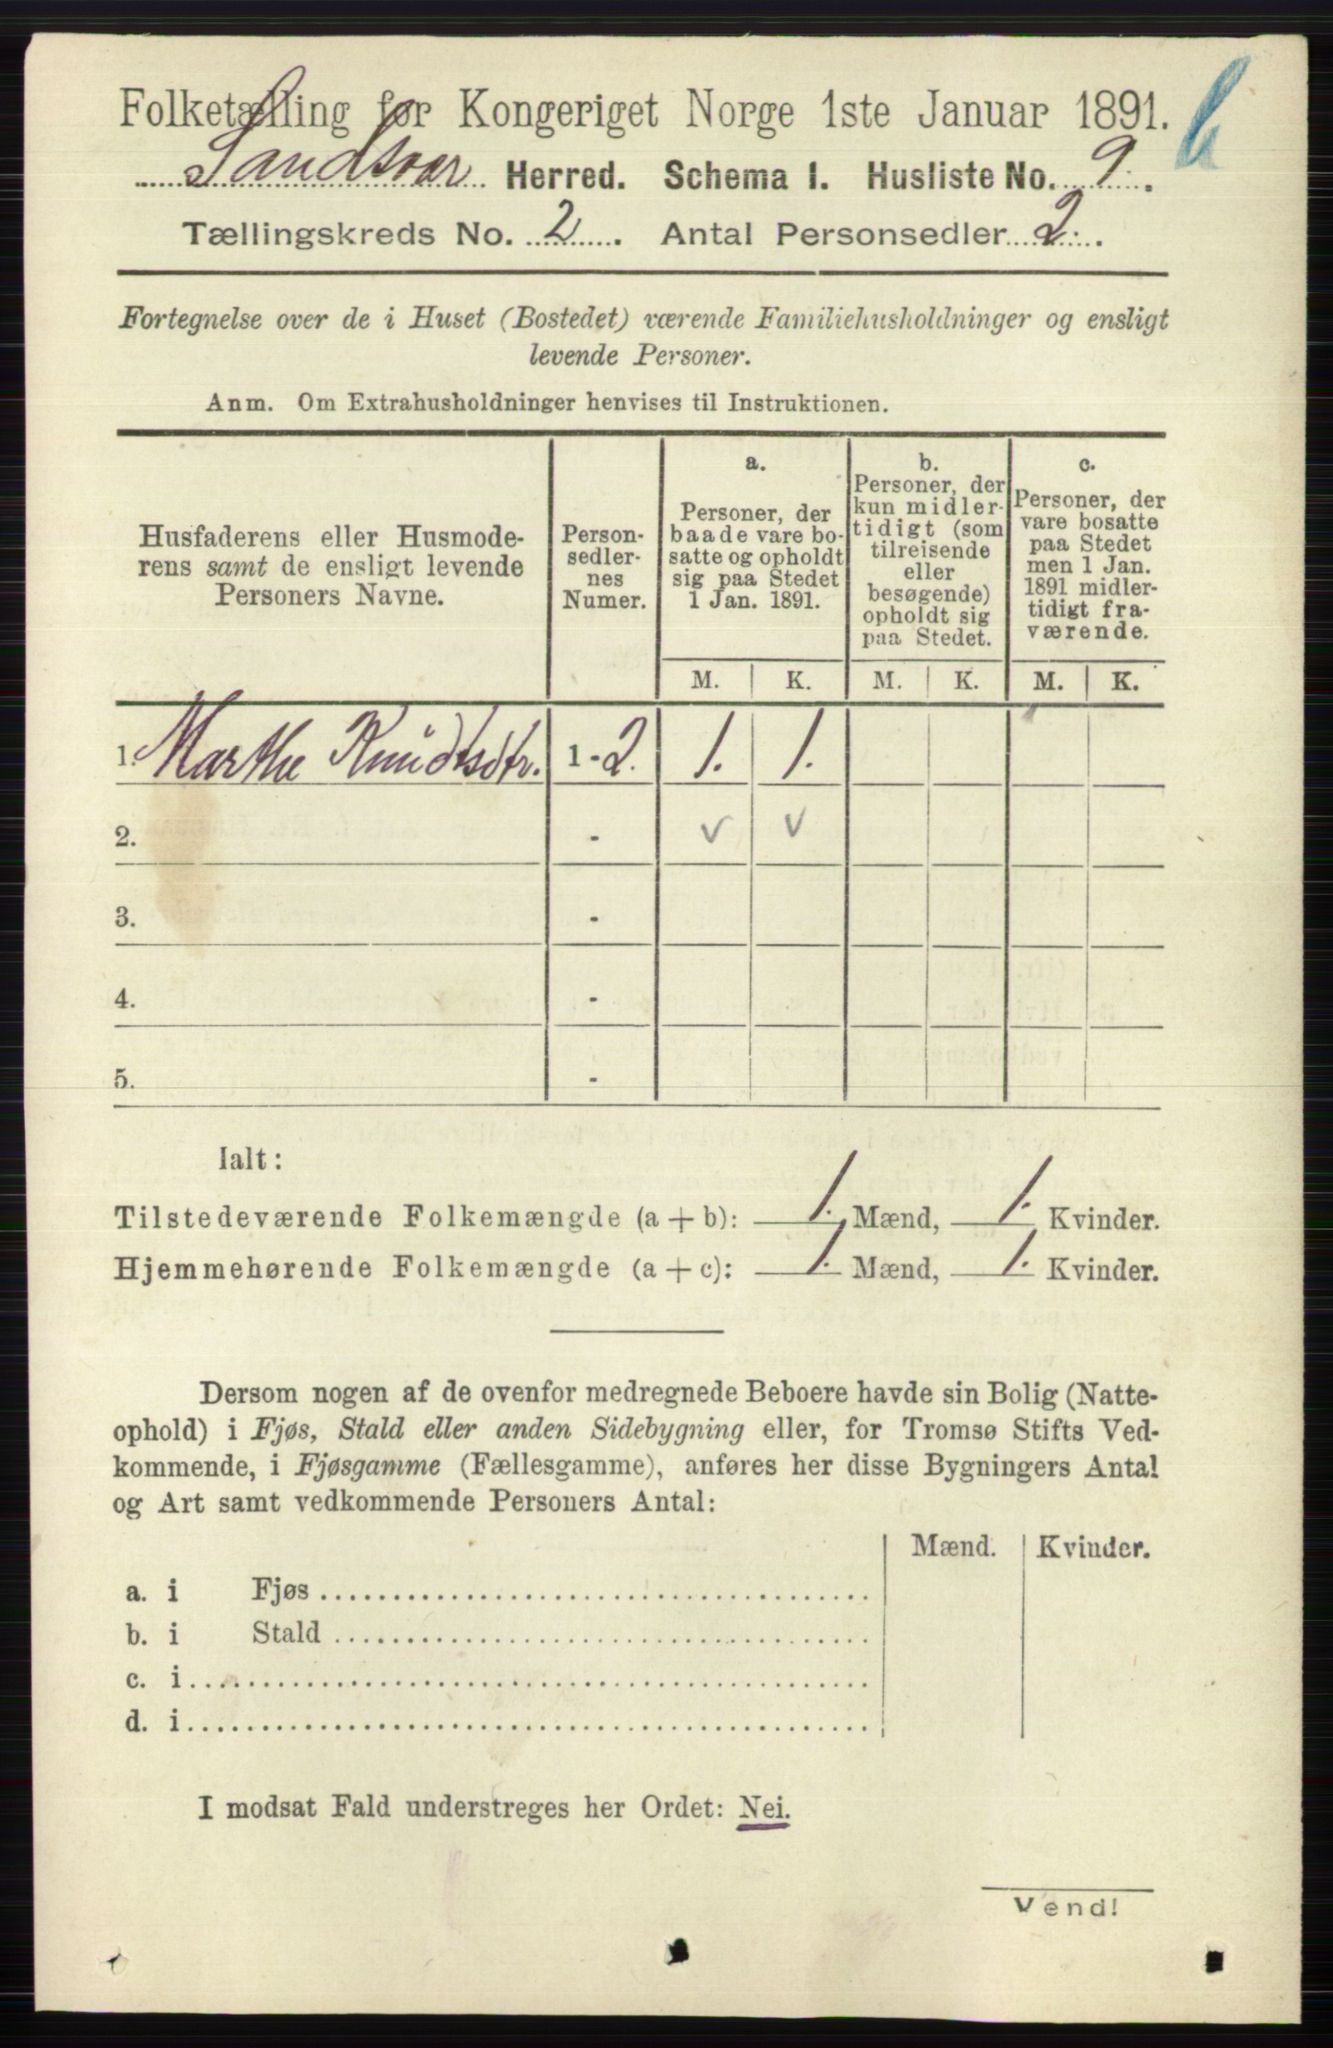 Folketælling for Kongeriget Norge 1ste Januar 1891.
Sandsvær Herred. Schema 1. Husliste No. 9.
Tællingskreds No. 2. Antal Personsedler 2.
Fortegnelse over de i Huset (Bostedet) værende Familiehusholdninger og ensligt
levende Personer.
Anm. Om Extrahusholdninger henvises til Instruktionen.
Husfaderens eller Husmode-
rens samt de ensligt levende
Personers Navne.
Person-
sedler-
nes
Numer.
a.
Personer, der
baade vare bo-
satte og opholdt
sig paa Stedet
1 Jan. 1891.
b.
Personer, der
kun midler-
tidigt (som
tilreisende
eller
besøgende)
opholdt sig
paa Stedet.
c.
Personer, der
vare bosatte
paa Stedet
men 1 Jan.
1891 midler-
tidigt fra-
værende.
M. K. M. K. M. K.
1. Marthe Knudtsdtr. 1 - 2. 1. 1.
2. - v v
3. -
4. -
5. -
Ialt:
Tilstedeværende Folkemængde (a + b): 1. Mænd, 1. Kvinder.
Hjemmehørende Folkemængde (a + c): 1. Mænd, 1. Kvinder.
Dersom nogen af de ovenfor medregnede Beboere havde sin Bolig (Natte-
ophold) i Fjøs, Stald eller anden Sidebygning eller, for Tromsø Stifts Ved-
kommende, i Fjøsgamme (Fællesgamme), anføres her disse Bygningers Antal
og Art samt vedkommende Personers Antal:
Mænd. Kvinder.
a. i Fjøs
b. i Stald
c. i
d. i
I modsat Fald understreges her Ordet: Nei.
Vend!